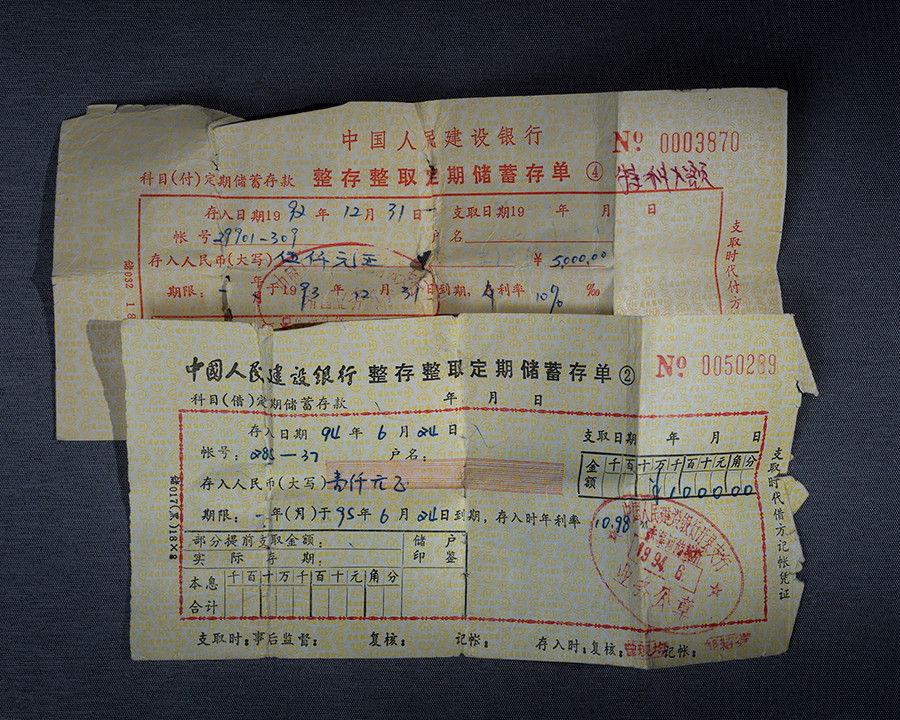 中国人民建设银行
№ 0003870
科目(付)定期储蓄存款 整存整取定期储蓄存单 ④
存入日期1992年12月31日 支取日期19 年 月 日
帐号29901-309 户名
存入人民币(大写)伍仟元正 ¥5,000.00
期限：一年月于1993年12月31日到期，月利率10% ‰
支取时代付方
储032 18
中国人民建设银行 整存整取定期储蓄存单 ②
№ 0050289
科目(借)定期储蓄存款 年 月 日
存入日期 94年6月24日 支取日期 年 月 日
帐号：285-37 户名：
金额 千百十万千百十元角分
¥100000
存入人民币(大写)壹仟元正
期限：一年(月)于95年6月24日到期，存入时年利率10.98
部分提前支取金额： 储户
实际存期： 印鉴
本息 千百十万千百十元角分
合计
1994.6.
业务公章
支取时代借方记帐凭证
支取时：事后监督： 复核： 记帐： 存入时：复核： 记帐：